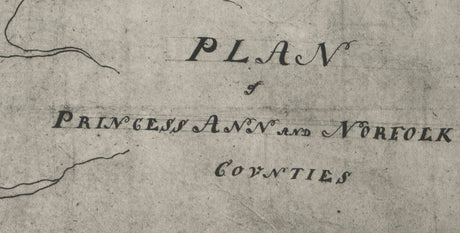 PLAN
of
PRINCESS ANN AND NORFOLK
COUNTIES